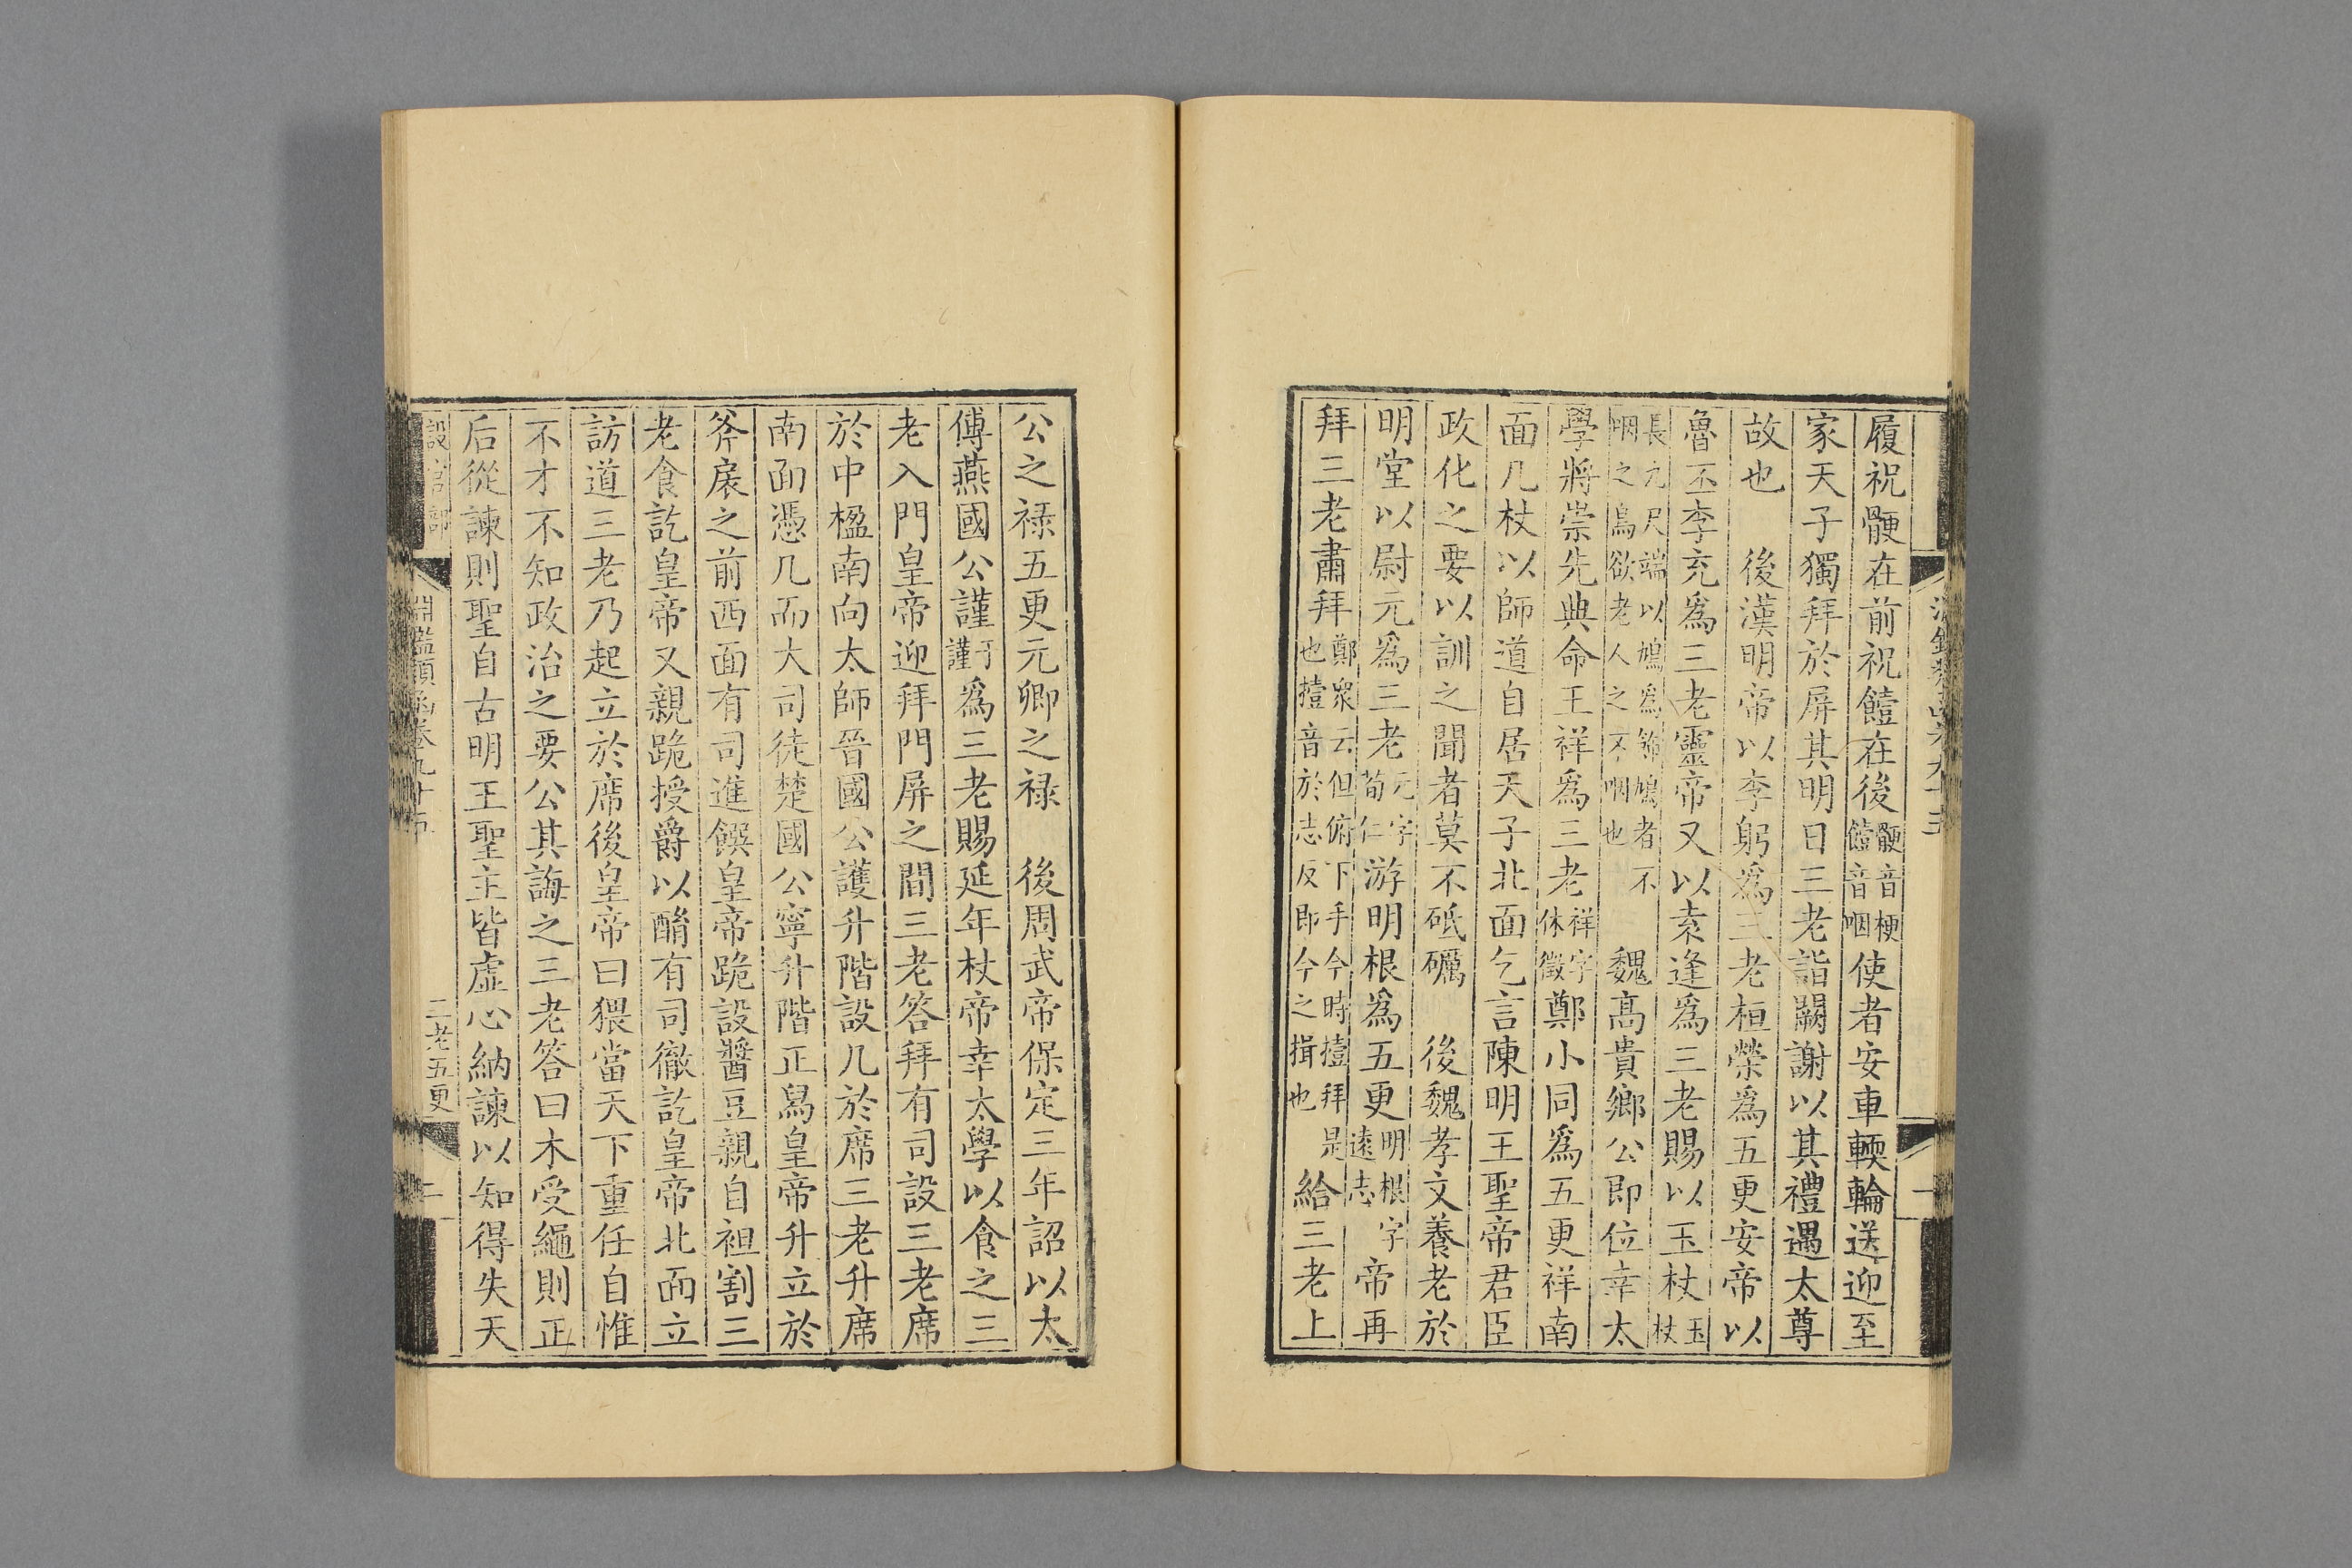 履祝骾在前祝饐在後骾音梗饐音咽使者安車輭輪送迎至
家天子獨拜於屏其明日三老詣闕謝以其禮遇太尊
故也 後漢明帝以李躬爲三老桓榮爲五更安帝以
魯丕李充爲三老靈帝又以袁逢爲三老賜以玉杖玉杖
長九尺端以鳩爲飾鳩者不咽之鳥欲老人之不咽也 魏髙貴鄉公即位幸太
學將崇先典命王祥爲三老祥字休徵鄭小同爲五更祥南
面几杖以師道自居天子北面乞言陳明王聖帝君臣
政化之要以訓之聞者莫不砥礪 後魏孝文養老於
明堂以尉元爲三老元字荀仁游明根爲五更明根字遠志帝再
拜三老肅拜鄭衆云但俯下手今時撎拜是也撎音於志反即今之揖也給三老上
公之祿五更元卿之禄 後周武帝保定三年詔以太
傅燕國公謹于謹爲三老賜延年杖帝幸太學以食之三
老入門皇帝迎拜門屏之間三老答拜有司設三老席
於中楹南向太師晉國公護升階設几於席三老升席
南面憑几而大司徒楚國公寧升階正舄皇帝升立於
斧扆之前西面有司進饌皇帝跪設醬豆親自袒割三
老食訖皇帝又親跪授爵以酳有司徹訖皇帝北面立
訪道三老乃起立於席後皇帝曰猥當天下重任自惟
不才不知政治之要公其誨之三老答曰木受繩則正
后從諫則聖自古明王聖主皆虛心納諫以知得失天
設官部 淵鑑類函卷九十五 三老五更 二